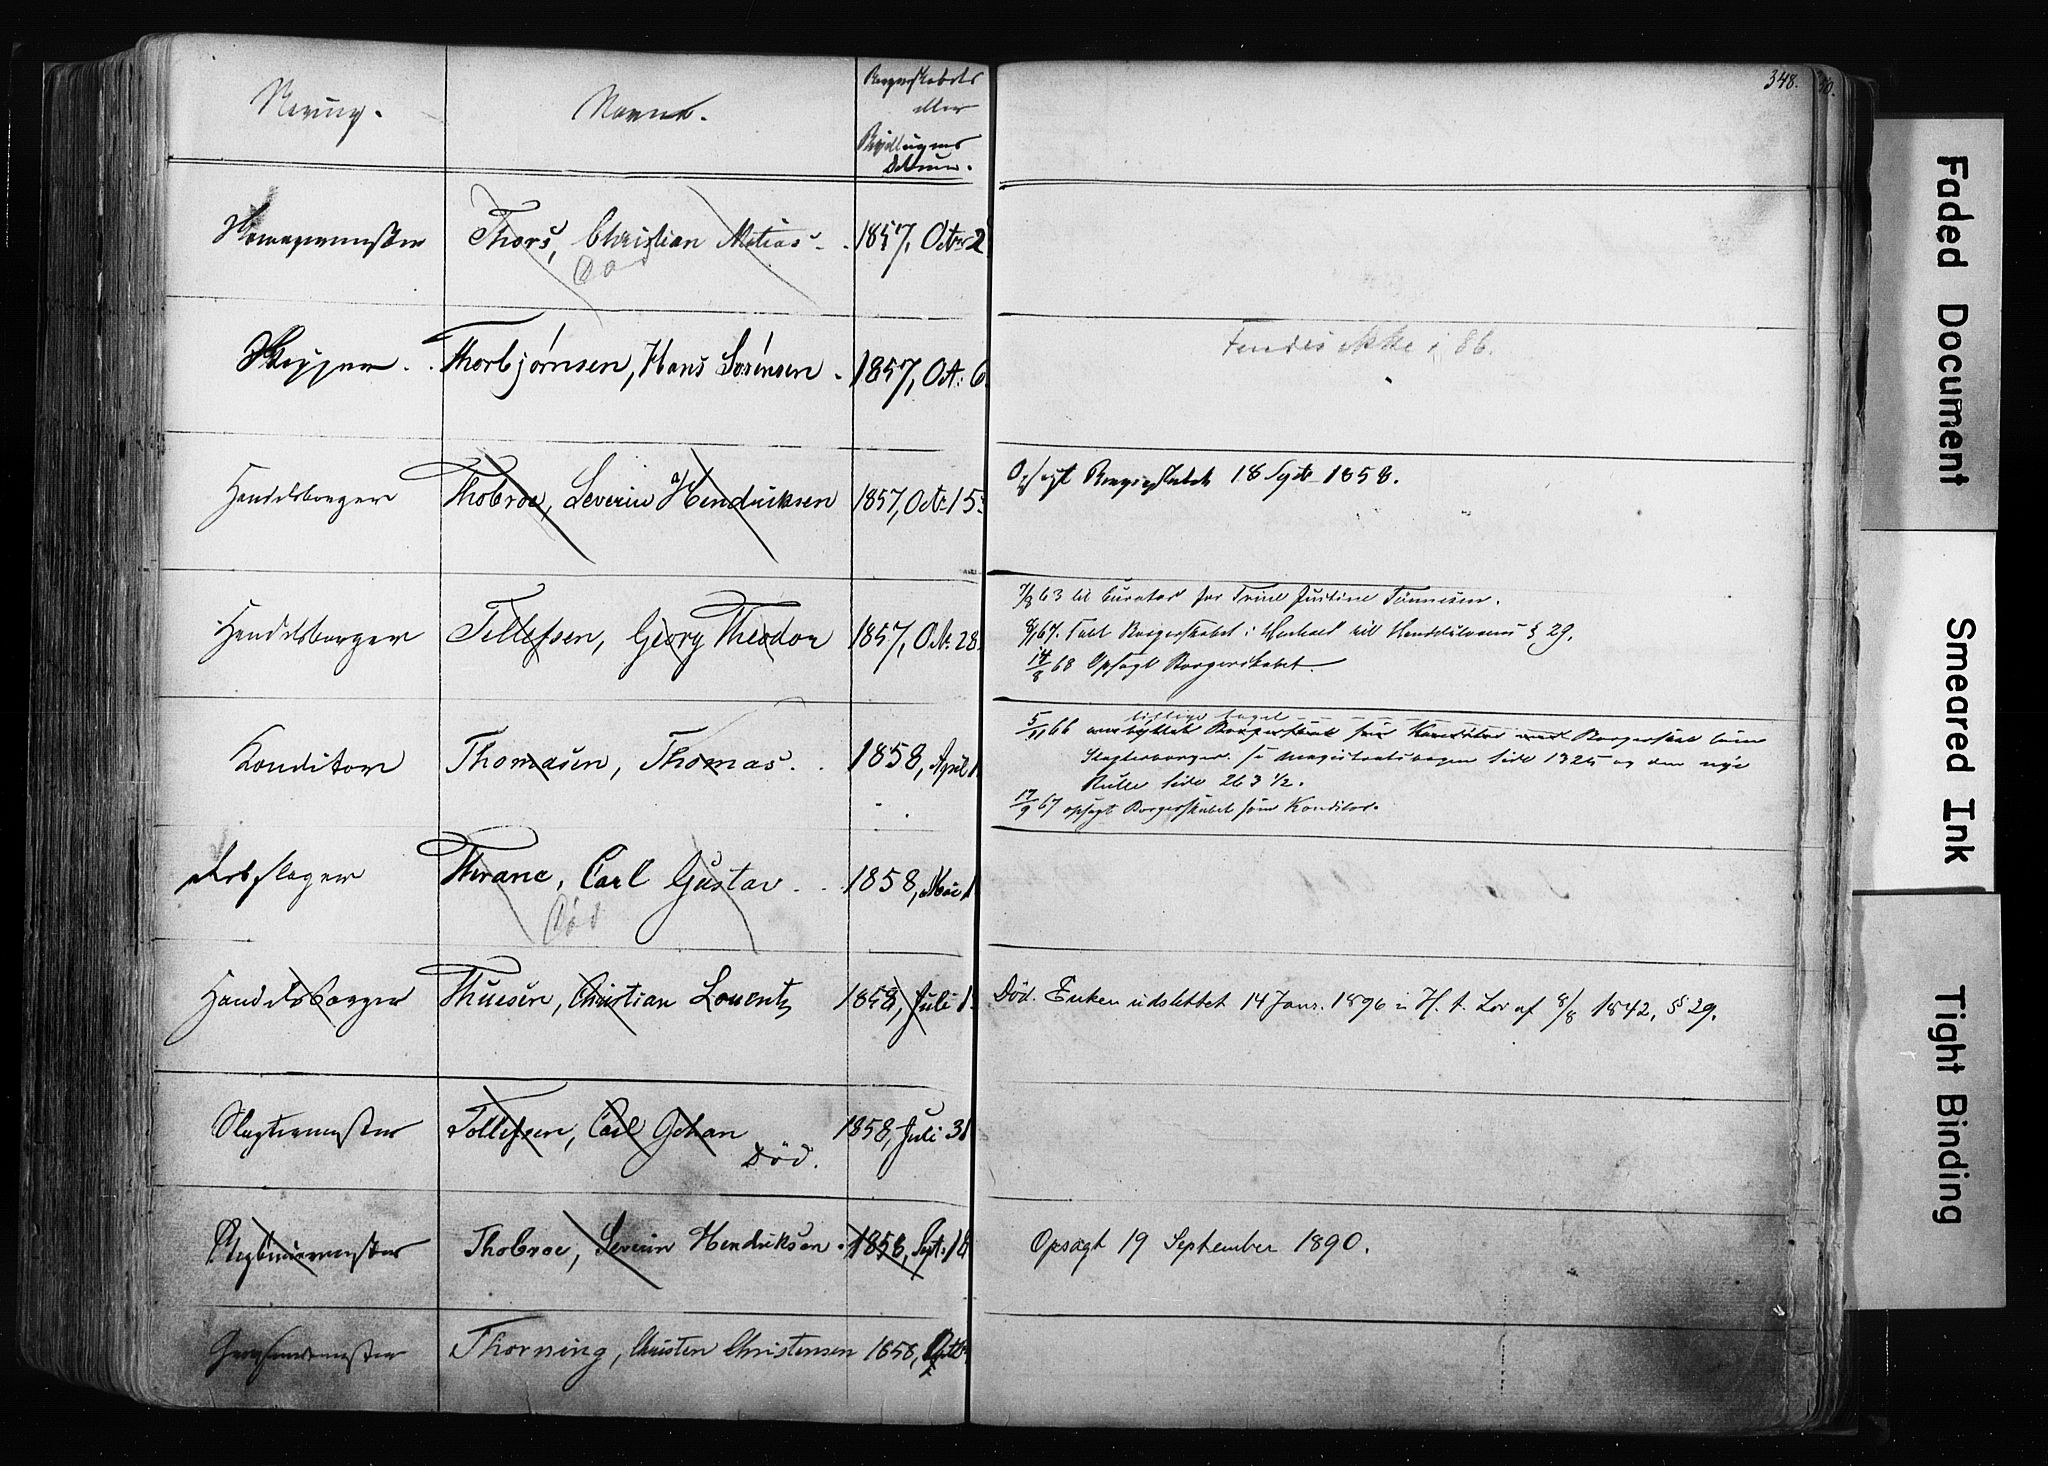 Næring.
Navne.
Borgerskabets
eller
Bevillingens
Datum.
348.
50.
Thors, Christian Matias.
1857, Octr 2
Død
Skipper.
Thorbjørnsen, Hans Sørensen.
1857, Oct: 6
Findes ikke i 86.
Handelsborger
Thobroe, Severin Hendriksen
1857, Oct: 15
Opsagt Borgerskabet 18 Septr 1858.
Handelsborger
Tellefsen, Georg Theodor
1857, Oct. 28
7/8 63 til Curator for Trine Justine Tønnesen.
8/1 67. Tabt Borgerskabet i Henhold til Handelslovens § 29.
14/8 68 Opsagt Borgerskabet.
Konditor
Thomasen, Thomas.
1858, April 1
5/11 66 ombyttet Borgerskab som Konditor med Borgerskab som
Slagterborger. se Magistratsbogen side 1325 og den nye
Rulle side 263 1/2.
17/9 67 opsagt Borgerskabet som Konditor.
Rebslager
Thrane, Carl Gustav.
1858, Mai 1
Død
Handelsborger
Thuesen, Christian Lorentz
1858, Juli 1
Død. Enken udslettet 14 Janr. 1896 i H. t. Lov af 8/8 1842, § 29.
Slagtermester
Tollefsen, Carl Johan
1858, Juli 31
Død.
Thobroe, Severin Hendriksen
1858, Sept: 18
Opsagt 19 September 1890.
Thorning, Christen Christensen
1858,
Faded Document
Smeared Ink
Tight Binding